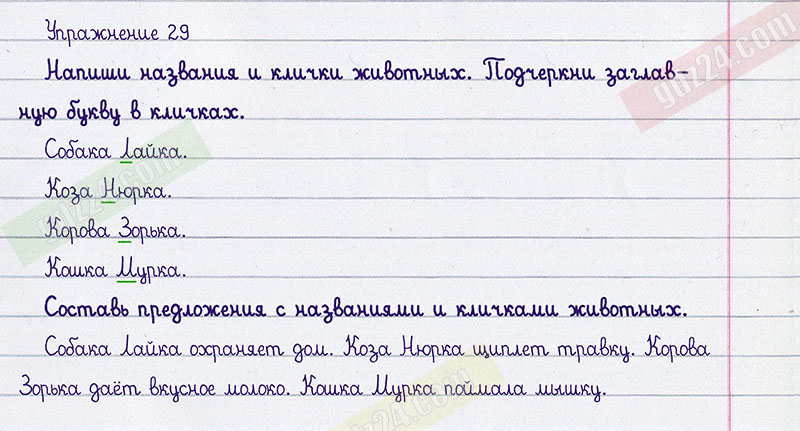 Упражнение 29
Напиши названия и клички животных. Подчеркни заглав-
ную букву в кличках.
Собака Лайка.
Коза Нюрка.
Корова Зорька.
Кошка Мурка.
Составь предложения с названиями и кличками животных.
Собака Лайка охраняет дом. Коза Нюрка щиплет травку. Корова
Зорька даёт вкусное молоко. Кошка Мурка поймала мышку.
gdz24.com
gdz24.com
gdz24.com